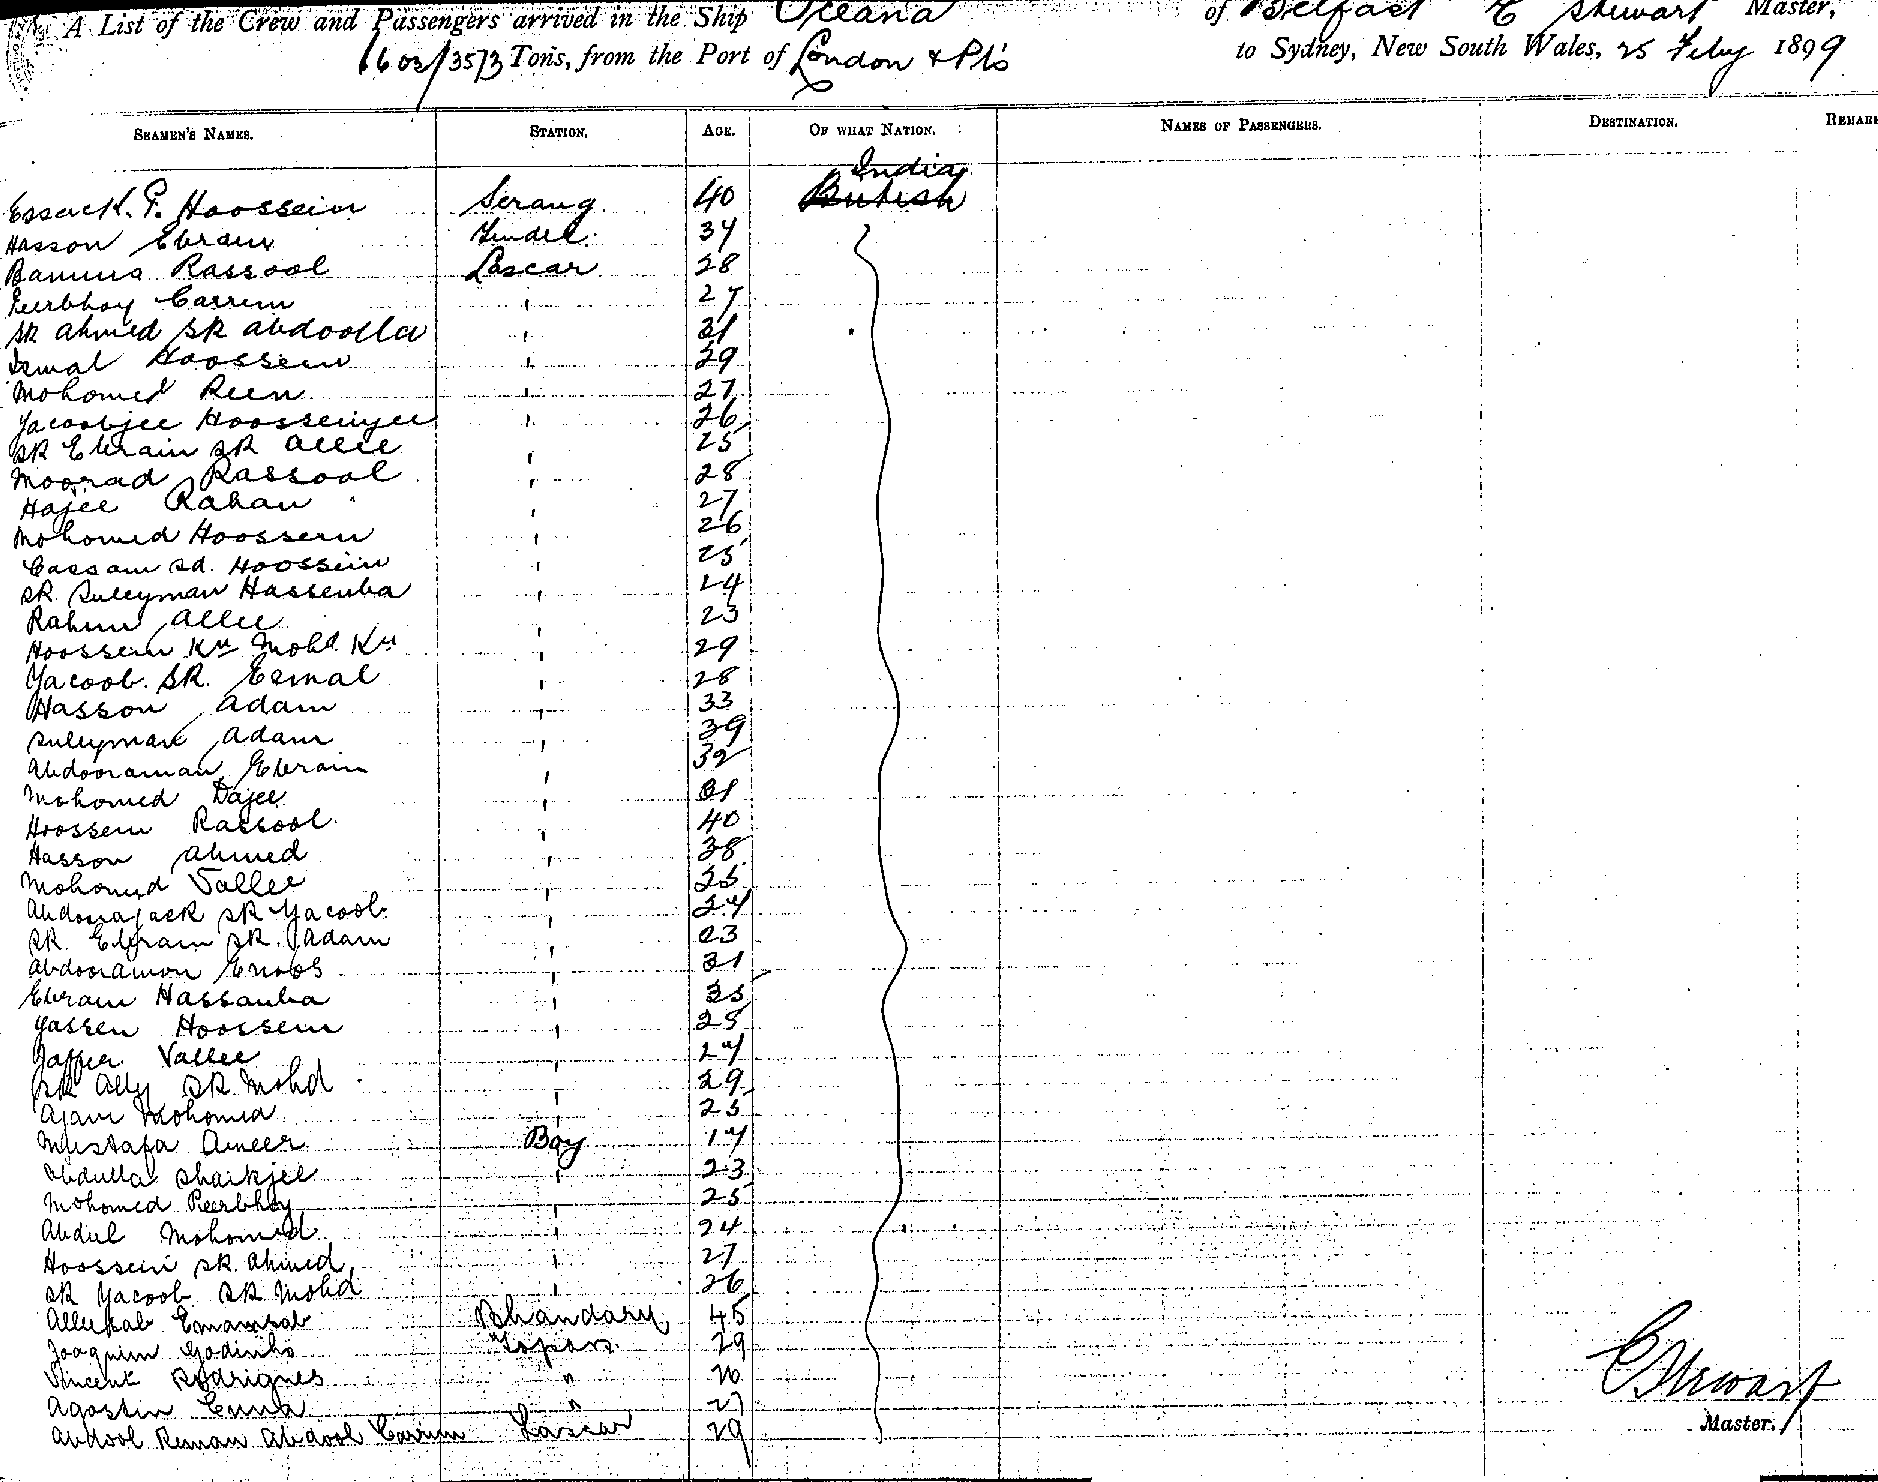 A List of the Crew and Passengers arrived in the Ship Oceana of Belfast C Stewart Master,
1603/3573 Tons, from the Port of London & Pts to Sydney, New South Wales, 25 Feby 1899
SEAMEN'S NAMES. STATION. AGE. OF WHAT NATION. NAMES OF PASSENGERS. DESTINATION. REMAR
India
Essack. P. Hoossein Serang 40 British
Hasson Ebram Tindel 34
Bamma Rassool Lascar 28
Peerbhoy Carrim " 27
SK Ahmed SK Abdoolla " 31
Esmal Hoossein " 29
Mohomed Reen " 27
Yacoobjee Hoosseinjee " 26
SK Ebraim SK Allee " 25
Moorad Rassool " 28
Hajee Rahan " 27
Mohomed Hoossein " 26
Cassam Sd. Hoossein " 25
SK Suleyman Hassenba " 24
Rahim Allee " 23
Hoossein Kn Mohd Kn " 29
Yacoob. SK. Esmal " 28
Hasson Adam " 33
Suleyman Adam " 39
Abdooraman Ebraim " 32
Mohomed Dajee " 31
Hoossein Rassool " 40
Hasson Ahmed " 38
Mohomed Vallee " 25
Abdoorajack SK Yacoob " 24
SK. Ebraim SK. Adam " 23
Abdooramon Enoos " 31
Ebram Hassanba " 35
Yassen Hoossein " 25
Jaffer Vallee " 24
SK Ally SK Mohd " 29
Ajam Mohomed " 25
Mustafa Ameer Boy 14
Abdulla Shaikjee " 23
Mohomed Peerbhoy " 25
Abdul Mohomed " 24
Hoossein SK. Ahmed " 27
SK Yacoob SK Mohd " 26
Alleesab Emamsab Bhandary 45
Joaquim Godinho Topass 29
Vincent Rodrigues " 26
Agostin " 27
Abdool Reman Abdool Carrim Lascar 29
C Stewart
Master.